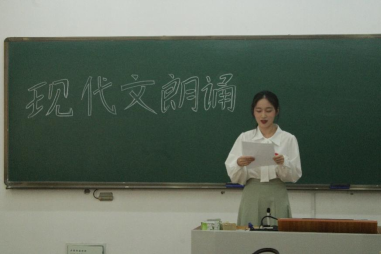 现代文朗诵